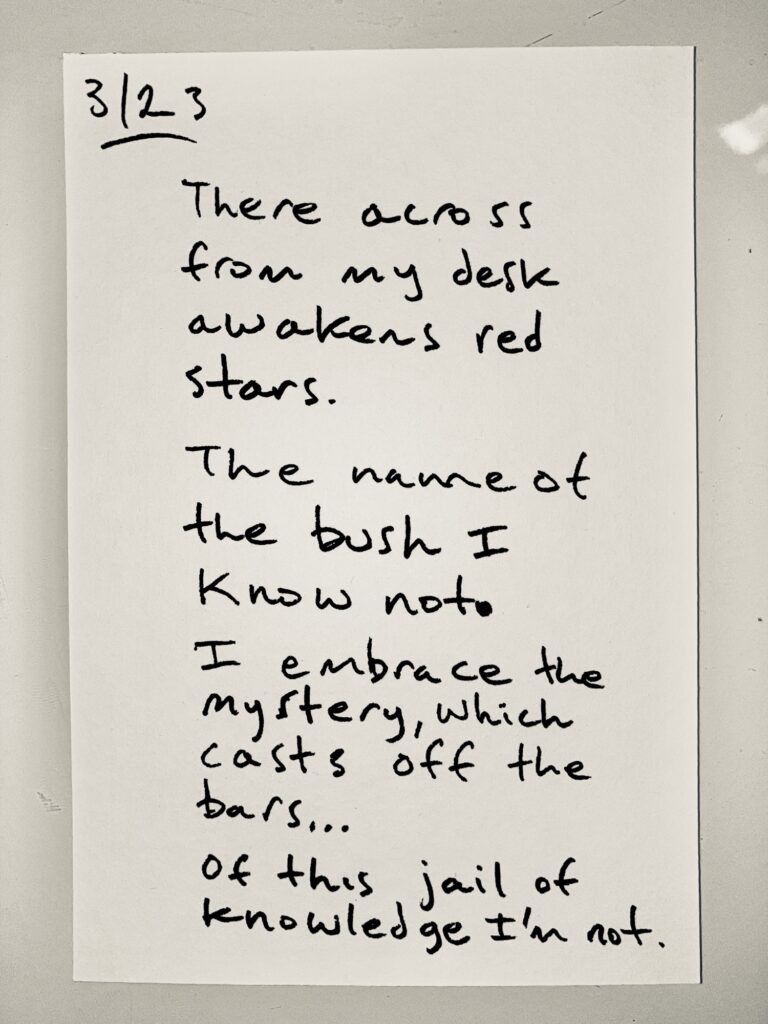 3/23
There across
from my desk
awakens red
stars.
The name of
the bush I
know not.
I embrace the
mystery, which
casts off the
bars...
Of this jail of
knowledge I'm not.